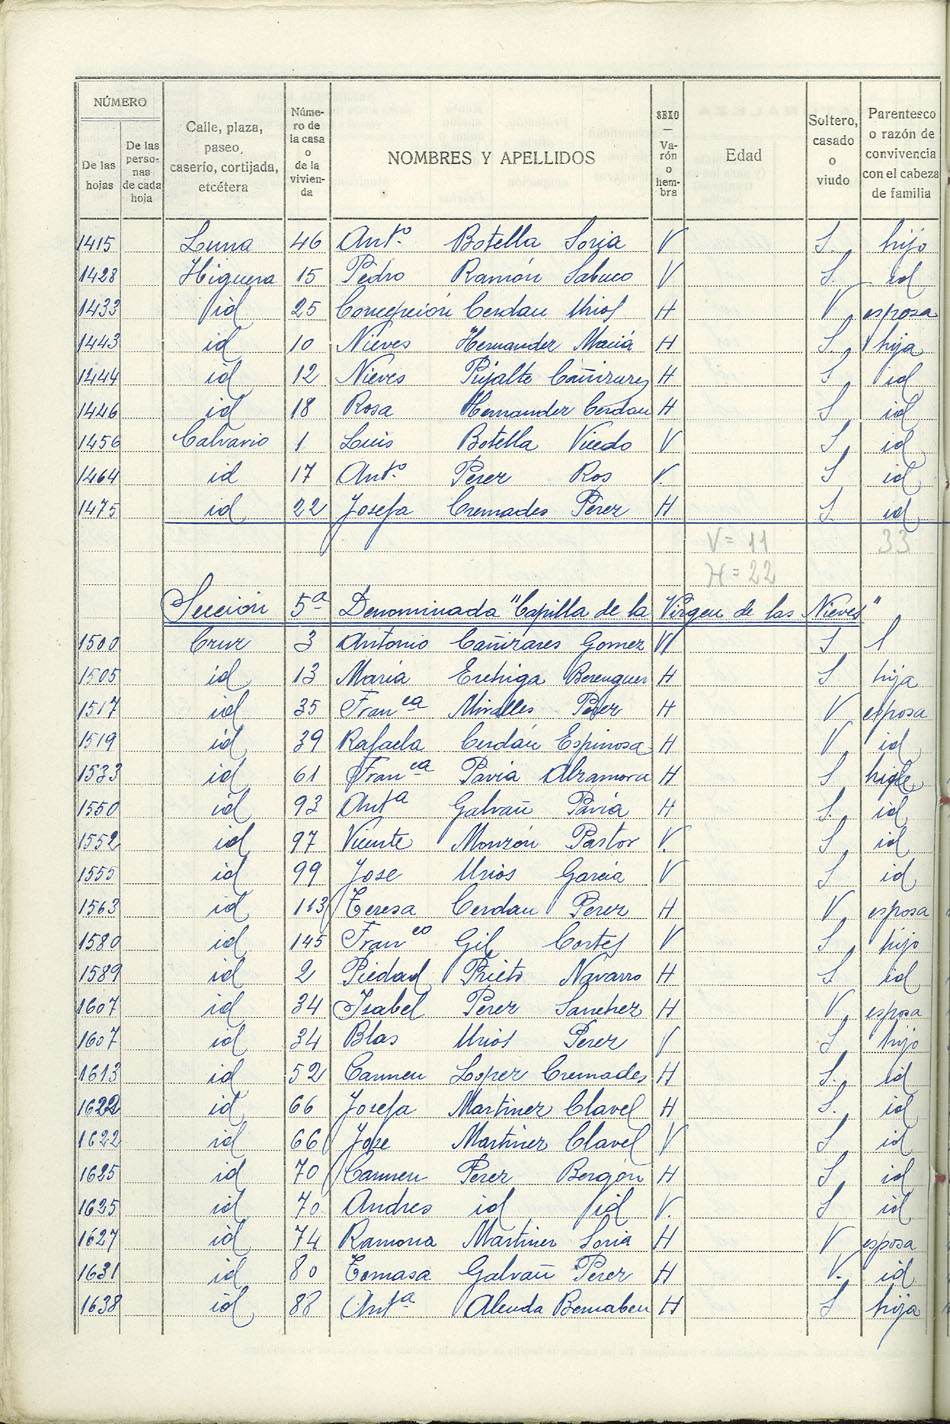 NÚMERO
De las hojas
De las perso- nas de cada hoja
Calle, plaza, paseo, caserío, cortijada, etcétera
Núme- ro de la casa o de la vivien- da
NOMBRES Y APELLIDOS
SEXO — Va- rón o hem- bra
Edad
Soltero, casado o viudo
Parentesco o razón de convivencia con el cabeza de familia
1415 Luna 46 Antº Botella Soria V S. hijo
1428 Higuera 15 Pedro Ramón Sabuco V S. id
1433 id 25 Concepción Cerdan Urios H V esposa
1443 id 10 Nieves Hernander Maciá H S. hija
1444 id 12 Nieves Pujalte Cañizares H S id
1446 id 18 Rosa Hernander Cerdan H S id
1456 Calvario 1 Luis Botella Vicedo V S id
1464 id 17 Antº Perez Ros V. S id
1475 id 22 Josefa Cremades Pérez H S. id
V = 11 33
H = 22
Sección 5ª Denominada "Capilla de la Virgen de las Nieves"
1500 Cruz 3 Antonio Cañizares Gomez V S
1505 id 13 María Berenguer H S hija
1517 id 35 Franca Miralles H V esposa
1519 id 39 Rafaela Cerdán Espinosa H V id
1533 id 61 Franca Pavía Alzamora H S
1550 id 93 Antª Galvañ Pavía H S. id
1552 id 97 Vicente Monzón Pastor V. S id
1555 id 99 Jose Urios García V S id
1563 id 113 Teresa Cerdan Perez H V esposa
1580 id 145 Franco Gil Cortes V S hijo
1589 id 2 Piedad Prieto Navarro H S id
1607 id 34 Isabel Pérez Sanchez H V esposa
1607 id 34 Blas Urios Perez V S hijo
1613 id 52 Carmen Lopez Cremades H S. id
1622 id 66 Josefa Martinez Clavel H S. id
1622 id 66 Jose Martinez Clavel V S id
1625 id 70 Carmen Pérez H S id
1625 id 70 Andres id id V. S id
1627 id 74 Ramona Martinez Soria H V esposa
1631 id 80 Tomasa Galvañ Perez H V. id
1638 id 88 Antª Alenda Bernabeu H S hija